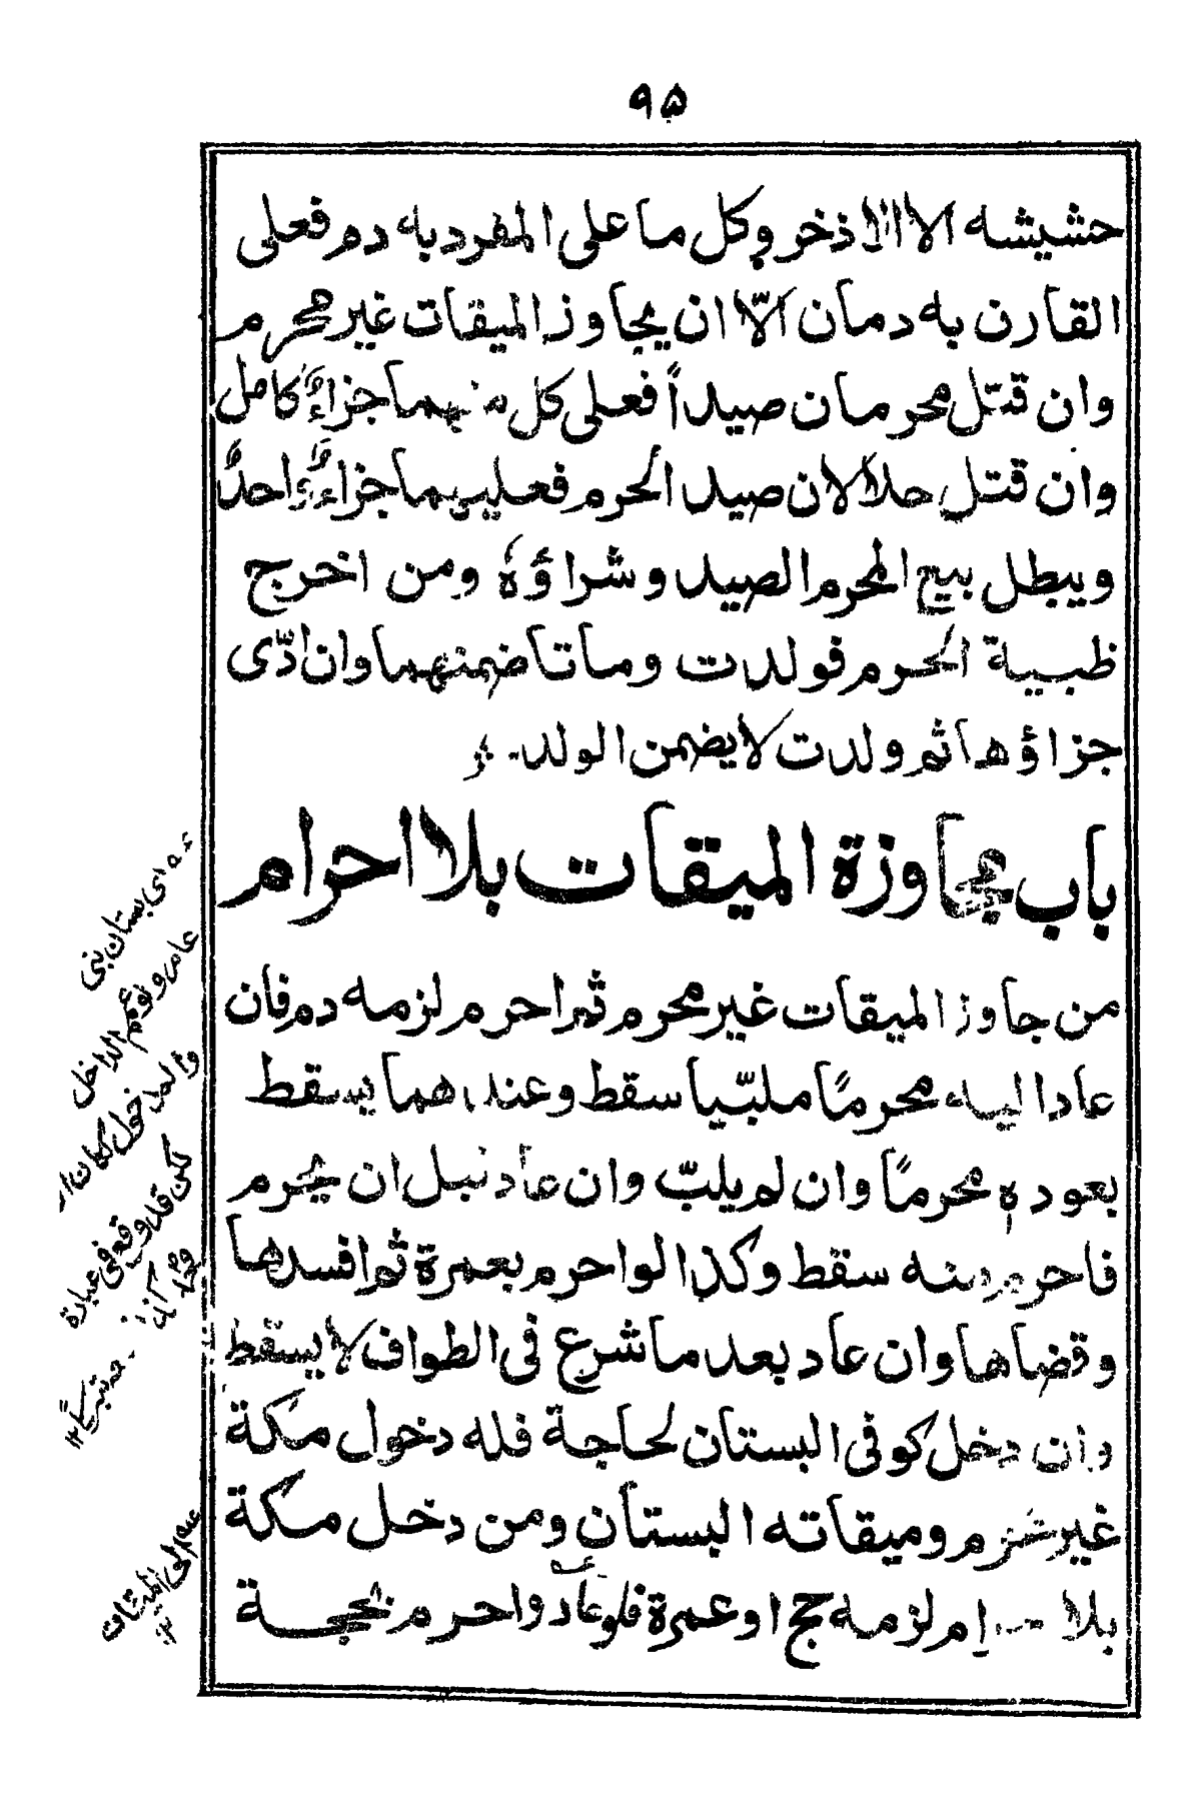 ٩٥
حشيشه الا الاذخر وكل ما على المفرد به دم فعلى
القارن به دمان الّا ان يجاوز الميقات غير محرم
وان قتل محرمان صيداً فعلى كل منهما جزاءٌ كامل
وان قتل حلالان صيد الحرم فعليهما جزاءٌ واحدٌ
ويبطل بيع المحرم الصيد وشراؤهٗ ومن اخرج
ظبية الحرم فولدت وماتا ضمنهما وان ادّى
جزاؤها ثم ولدت لا يضمن الولد۔
باب مجاوزة الميقات بلا احرام
من جاوز الميقات غير محرم ثم احرم لزمه دم فان
عاد اليه محرمًا ملبّيا سقط وعندهما يسقط
بعوده محرمًا وان لم يلبّ وان عاد قبل ان يحرم
فاحرم منه سقط وكذا لو احرم بعمرة ثم افسدها
وقضاها وان عاد بعد ما شرع فى الطواف لا يسقط
وان دخل كوفى البستان لحاجة فله دخول مكة
غير محرم وميقاته البستان ومن دخل مكة
بلا احرام لزمه حج او عمرة فلو عاد واحرم بحجة
اى بستان بنى
عامر
الداخل
لكن قد وقع فى عبارة
الى الميقات
١٢